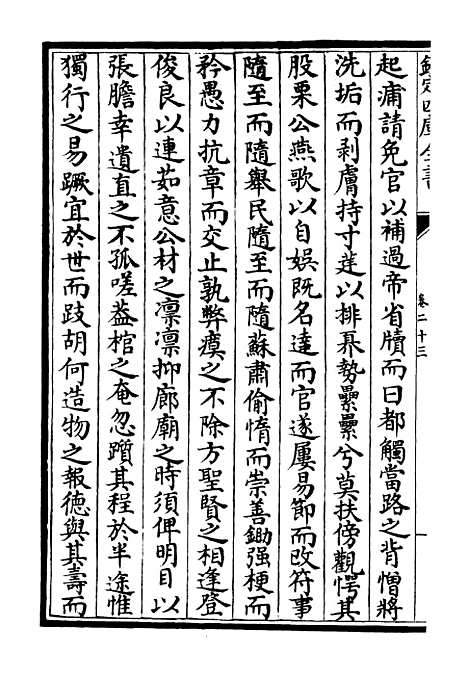 欽定四庫全書
卷二十三
起痡請免官以補過帝省牘而曰都觸當路之背憎將
洗垢而剥膚持寸莛以排奡勢纍纍兮莫扶傍觀愕其
股栗公燕歌以自娱既名達而官遂屢易節而改符事
隨至而隨舉民隨至而隨蘇肅偷惰而崇善鋤强梗而
矜愚力抗章而交止孰弊瘼之不除方聖賢之相逢登
俊良以連茹意公材之凛凛抑廊廟之時須俾明目以
張膽幸遺直之不孤嗟葢棺之奄忽躓其程於半途惟
獨行之易蹶宜於世而跂胡何造物之報德與其壽而